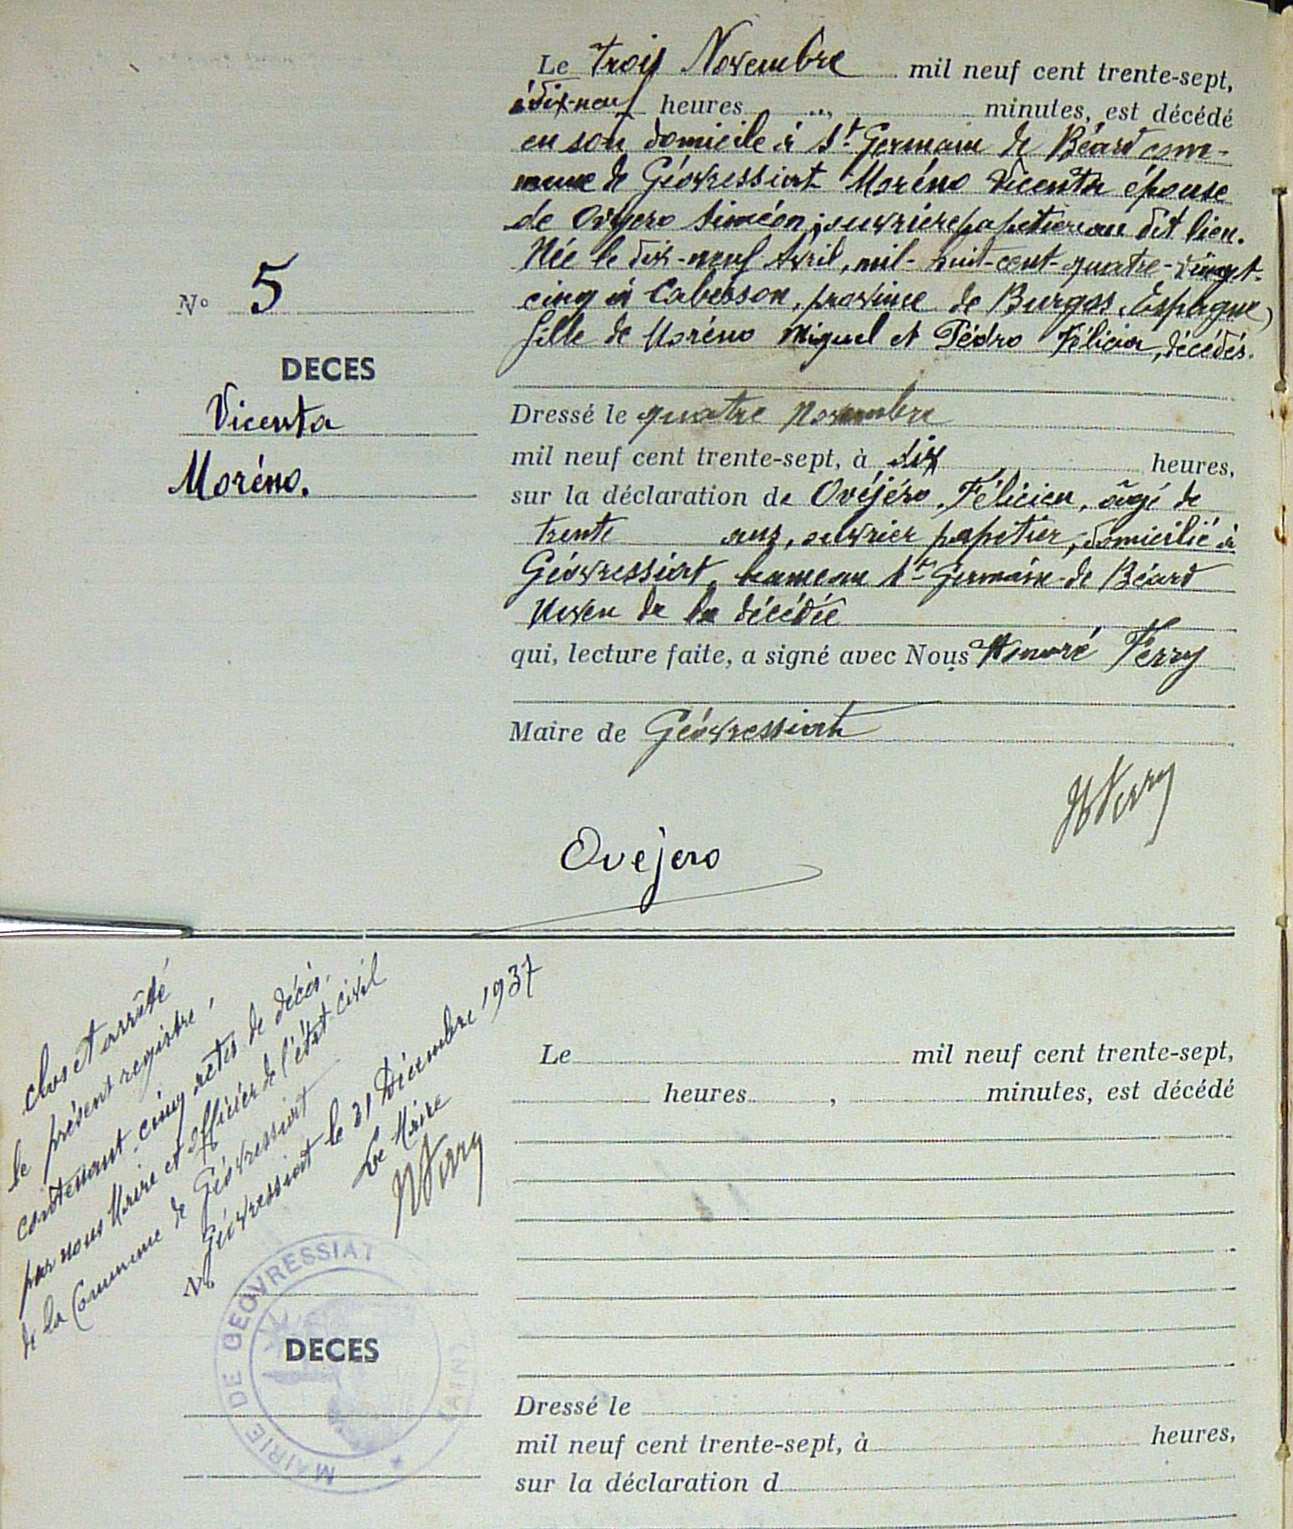 Le trois Novembre mil neuf cent trente-sept,
à dix-neuf heures ... , minutes, est décédé
en son domicile à St Germain de Béard com-
mune de Géovressiat Moréno Vicenta épouse
de Siméon, ouvrière papetière au dit lieu.
Née le dix-neuf Avril, mil-huit-cent-quatre-vingt-
cinq à Cabesson, province de Burgos, Espagne)
fille de Moréno Miguel et Pédro Félicia, décédés.
N° 5
DECES
Vicenta
Moréno.
Dressé le quatre Novembre
mil neuf cent trente-sept, à dix heures,
sur la déclaration de Ovéjéro, Félicien, âgé de
trente ans, ouvrier papetier, domicilié à
Géovressiat, hameau St Germain-de Béard
Neveu de la décédée
qui, lecture faite, a signé avec Nous Honoré Ferry
Maire de Géovressiat
HFerry
Ovejero
Clos et arrêté
le présent registre,
contenant cinq actes de décès.
par nous Maire et officier de l'état civil
de la Commune de Géovressiat
Géovressiat le 31 Décembre 1937
Le Maire
HFerry
Le mil neuf cent trente-sept,
heures , minutes, est décédé
N°
MAIRIE DE GEOVRESSIAT (AIN)
DECES
Dressé le
mil neuf cent trente-sept, à heures,
sur la déclaration d